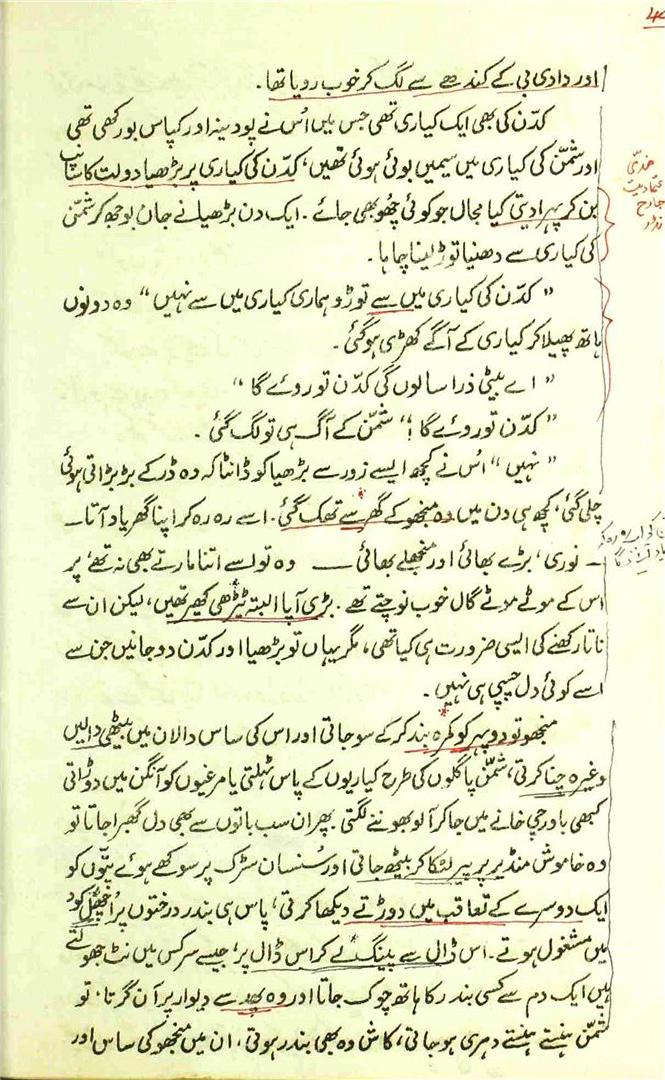 اور دادی بی کے کندھے سے لگ کر خوب رویا تھا۔
کدّن کی بھی ایک کیاری تھی جس میں اُس نے پودینہ اور کپاس بو رکھی تھی
اور شمّن کی کیاری میں سیمیں بوئی ہوئی تھیں، کدّن کی کیاری پر بڑھیا دولت کا سانپ
بن کر پہرا دیتی کیا مجال جو کوئی چھو بھی جائے۔ ایک دن بڑھیا نے جان بوجھ کر شمّن
کی کیاری سے دھنیا توڑ لینا چاہا۔
”کدّن کی کیاری میں سے توڑو ہماری کیاری میں سے نہیں“ وہ دونوں
ہاتھ پھیلا کر کیاری کے آگے کھڑی ہو گئی۔
”اے بیٹی ذرا سا لوں گی کدّن تو روئے گا“
”کدّن تو روئے گا!“ شمّن کے آگ ہی تو لگ گئی۔
”نہیں“ اُس نے کچھ ایسے زور سے بڑھیا کو ڈانٹا کہ وہ ڈر کے بڑبڑاتی ہوئی
چلی گئی، کچھ ہی دن میں وہ منجھو کے گھر سے تھک گئی۔ اسے رہ رہ کر اپنا گھر یاد آتا —
— نوری، بڑے بھائی اور منجھلے بھائی — وہ تو اسے اتنا مارتے بھی نہ تھے، پر
اس کے موٹے موٹے گال خوب نوچتے تھے۔ بڑی آپا البتہ ٹیڑھی کھیر تھیں، لیکن ان سے
ناتا رکھنے کی ایسی ضرورت ہی کیا تھی، مگر یہاں تو بڑھیا اور کدّن دو جانیں جن سے
اسے کوئی دل چسپی ہی نہیں۔
منجھو تو دوپہر کو کمرہ بند کر کے سو جاتی اور اس کی ساس دالان میں بیٹھی دالیں
وغیرہ چنا کرتی، شمّن پاگلوں کی طرح کیاریوں کے پاس ٹہلتی یا مرغیوں کو آنگن میں دوڑاتی
کبھی باورچی خانے میں جا کر آلو بھوننے لگتی۔ پھر ان سب باتوں سے بھی دل گھبرا جاتا تو
وہ خاموش منڈیر پر پیر لٹکا کر بیٹھ جاتی اور سُنسان سڑک پر سوکھے ہوئے پتّوں کو
ایک دوسرے کے تعاقب میں دوڑتے دیکھا کرتی، پاس ہی بندر درختوں پر اُچھل کود
میں مشغول ہوتے۔ اس ڈال سے پینگ لے کر اس ڈال پر، جیسے سرکس میں نٹ جھولتے
ہیں ایک دم سے کسی بندر کا ہاتھ چوک جاتا اور وہ پھد سے دیوار پر آن گرتا، تو
شمّن ہنستے ہنستے دہری ہو جاتی، کاش وہ بھی بندر ہوتی، ان میں منجھو کی ساس اور